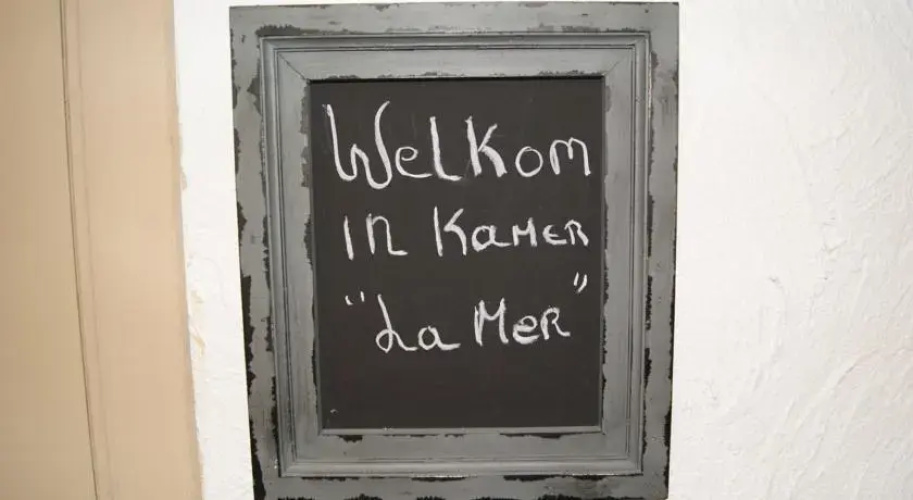 Welkom
in Kamer
"La Mer"